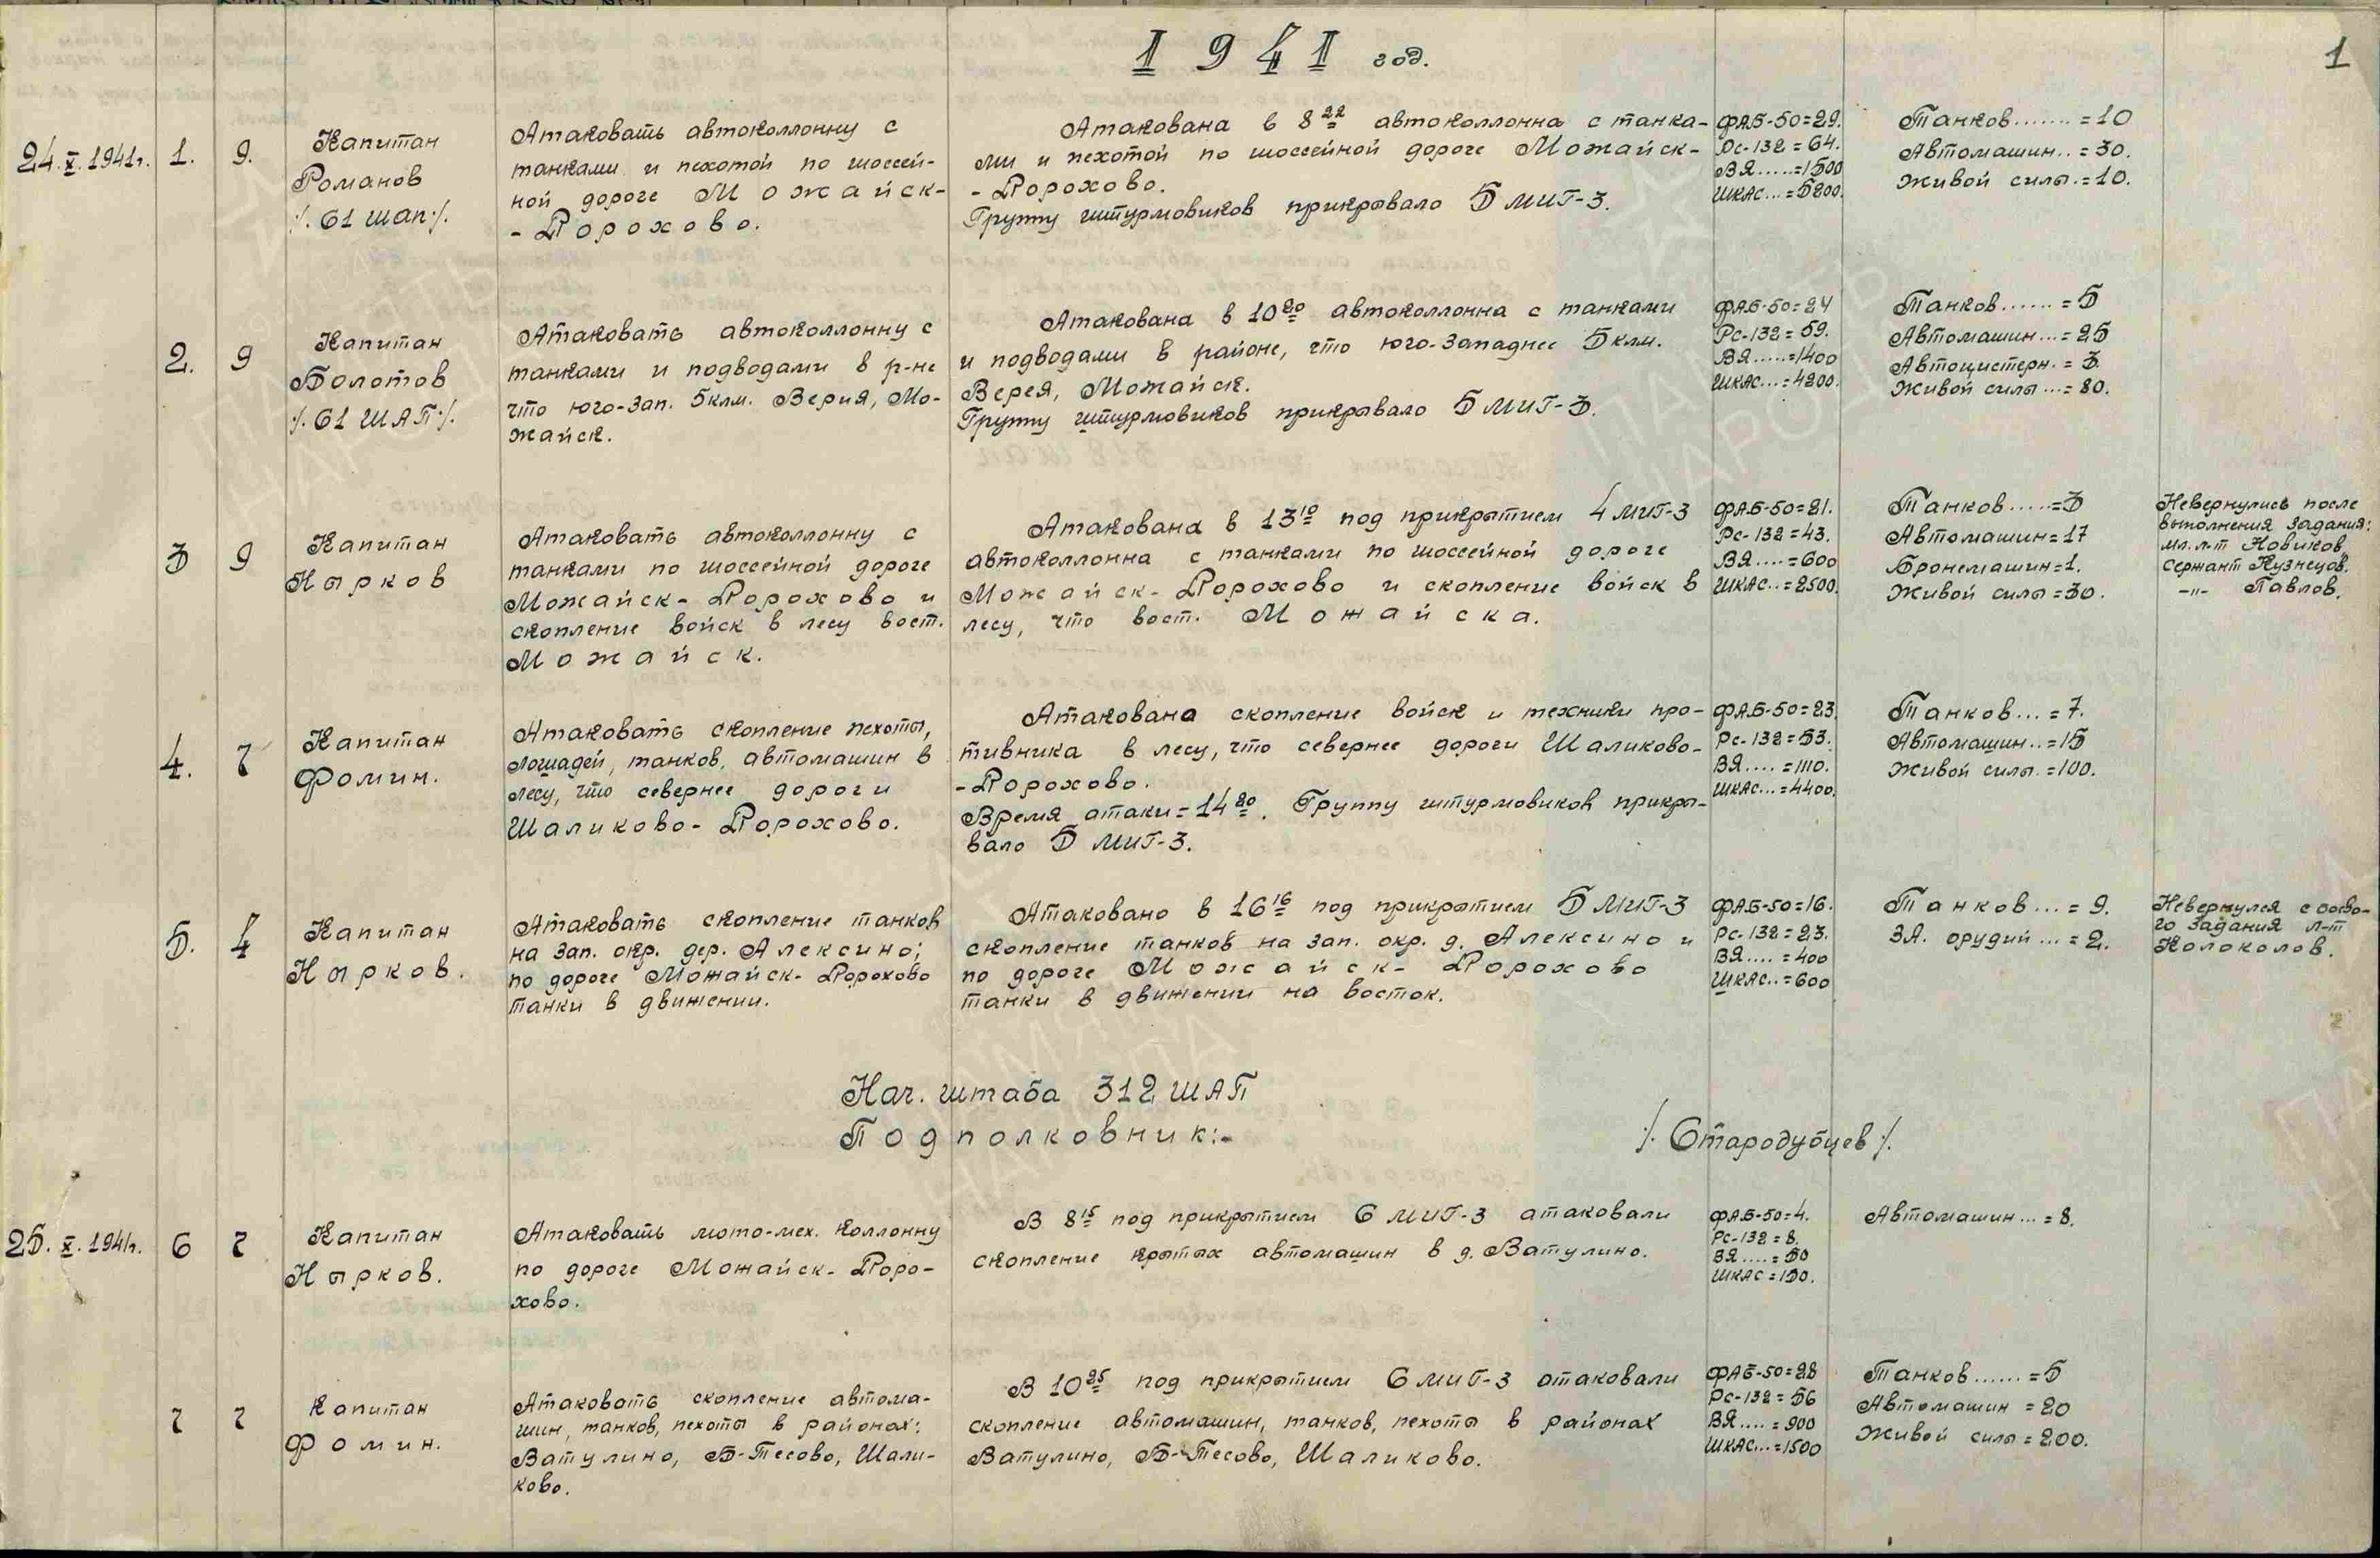 1941 год.
1
24.X.1941г.
1.
9.
Капитан
Романов
/.61 шап./.
Атаковать автоколлонну с
танками и пехотой по шоссей-
ной дороге Можайск-
- Дорохово.
Атакована в 8 22 автоколлонна с танка-
ми и пехотой по шоссейной дороге Можайск-
- Дорохово.
Группу штурмовиков прикрывало 5 МИГ-3.
ФАБ-50=29.
РС-132=64.
ВЯ.....=1500
ШКАС...=5200.
Танков.......=10
Автомашин..=30.
Живой силы.=10.
2.
9
Капитан
Болотов
/.61 ШАП./.
Атаковать автоколлонну с
танками и подводами в р-не
что юго-зап. 5клм. Верия, Мо-
жайск.
Атакована в 10 20 автоколлонна с танками
и подводами в районе, что юго-западнее 5 клм.
Верея, Можайск.
Группу штурмовиков прикрывало 5 МИГ-3.
ФАБ-50=24
РС-132=59.
ВЯ.....=1400
ШКАС...=4200.
Танков......=5
Автомашин...=25
Автоцистерн.=3.
Живой силы...=80.
3
9
Капитан
Нырков
Атаковать автоколлонну с
танками по шоссейной дороге
Можайск- Дорохово и
скопление войск в лесу вост.
Можайск.
Атакована в 13 10 под прикрытием 4 МИГ-3
автоколлонна с танками по шоссейной дороге
Можайск- Дорохово и скопление войск в
лесу, что вост. Можайска.
ФАБ-50=21.
РС-132=43.
ВЯ....=600
ШКАС..=2500.
Танков.....=3
Автомашин=17
Бронемашин=1.
Живой силы=30.
Невернулись после
выполнения задания:
мл. л-т Новиков
Сержант Кузнецов.
-"- Павлов.
4.
7
Капитан
Фомин.
Атаковать скопление пехоты,
лошадей, танков, автомашин в
лесу, что севернее дороги
Шаликово- Дорохово.
Атакована скопление войск и техники про-
тивника в лесу, что севернее дороги Шаликово-
- Дорохово.
Время атаки=14 20. Группу штурмовиков прикры-
вало 5 МИГ-3.
ФАБ-50=23.
РС-132=53.
ВЯ....=1110.
ШКАС...=4400.
Танков...=7.
Автомашин..=15
Живой силы.=100.
5.
4
Капитан
Нырков.
Атаковать скопление танков
на зап. окр. дер. Алексино;
по дороге Можайск- Дорохово
танки в движении.
Атаковано в 16 16 под прикрытием 5 МИГ-3
скопление танков на зап. окр. д. Алексино и
по дороге Можайск- Дорохово
танки в движении на восток.
ФАБ-50=16.
РС-132=23.
ВЯ....=400
ШКАС..=600
Танков...=9.
ЗА. орудий...=2.
Невернулся с боево-
го задания л-т
Колоколов.
Нач. штаба 312 ШАП
Подполковник:-
/. Стародубцев /.
25.X.1941г.
6
7
Капитан
Нырков.
Атаковать мото-мех. коллонну
по дороге Можайск- Доро-
хово.
В 8 15 под прикрытием 6 МИГ-3 атаковали
скопление крытых автомашин в д. Ватулино.
ФАБ-50=4.
РС-132=8.
ВЯ....=50
ШКАС=150.
Автомашин...=8.
7
7
Капитан
Фомин.
Атаковать скопление автома-
шин, танков, пехоты в районах:
Ватулино, Б-Тесово, Шали-
ково.
В 10 25 под прикрытием 6 МИГ-3 атаковали
скопление автомашин, танков, пехоты в районах
Ватулино, Б-Тесово, Шаликово.
ФАБ-50=28
РС-132=56
ВЯ....=900
ШКАС...=1500
Танков......=5
Автомашин =20
Живой силы=200.